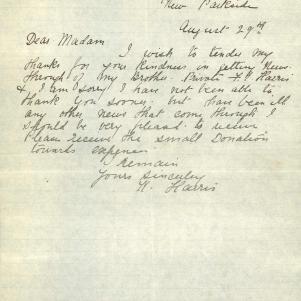 New Parkside
August 29th
Dear Madam
I wish to tender my
thanks for your kindness in getting news
through of my Brother. Private Harris
& I am sorry I have not been able to
thank you sooner. but have been ill
any other news that come through I
should be very pleased to receive
Please receive the small Donation
towards expenses
I remain
Yours Sincerley
Harris